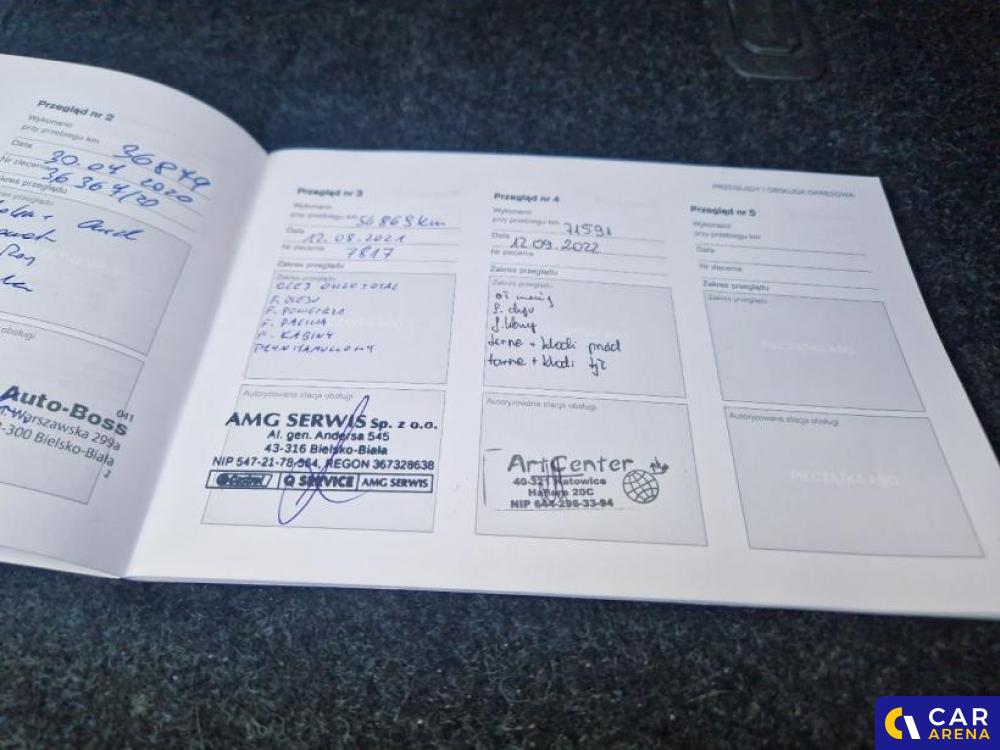 Przegląd nr 2
Wykonano
przy przebiegu km 36849
Data 30.04.2020
Nr zlecenia 36364/20
zakres przeglądu
obsługi
Auto-Boss
Warszawska 299a
-300 Bielsko-Biała
041
2
Przegląd nr 3
Wykonano
przy przebiegu km 56869km
Data 12.08.2021
Nr zlecenia 7817
Zakres przeglądu
Zakres przeglądu
OLEJ
F. OLEJU
F. POWIETRZA
F. PALIWA
F. KABINY
PŁYN HAMULCOWY
Autoryzowana stacja obsługi
AMG SERWIS Sp. z o.o.
Al. gen. Andersa 545
43-316 Bielsko-Biała
NIP 547-21-78-564, REGON 367328638
Castrol Q SERVICE AMG SERWIS
Przegląd nr 4
Wykonano
przy przebiegu km 71591
Data 12.09.2022
Nr zlecenia
Zakres przeglądu
Zakres przeglądu
tarne + klocki przód
tarne + klocki tył
Autoryzowana stacja obsługi
ArtCenter
40-321 Katowice
Hallera 20C
NIP 644-296-33-94
PRZEGLĄDY I OBSŁUGA OKRESOWA
Przegląd nr 5
Wykonano
przy przebiegu km
Data
Nr zlecenia
Zakres przeglądu
Zakres przeglądu
PIECZĄTKA ASO
Autoryzowana stacja obsługi
PIECZĄTKA ASO
CAR
ARENA